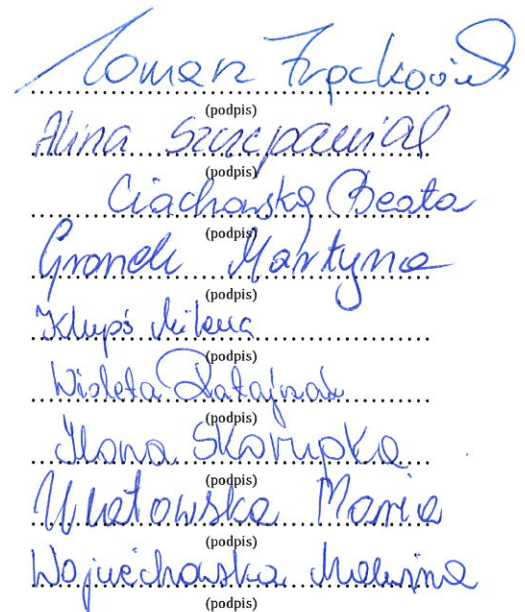 Tomasz Frąckowiak
(podpis)
Alina Szczepaniak
(podpis)
Ciachowska Beata
(podpis)
Gronek Martyna
(podpis)
Klupś Milena
(podpis)
Wioleta Ratajczak
(podpis)
Ilona Skorupka
(podpis)
Maria
(podpis)
Wojciechowska Malwina
(podpis)